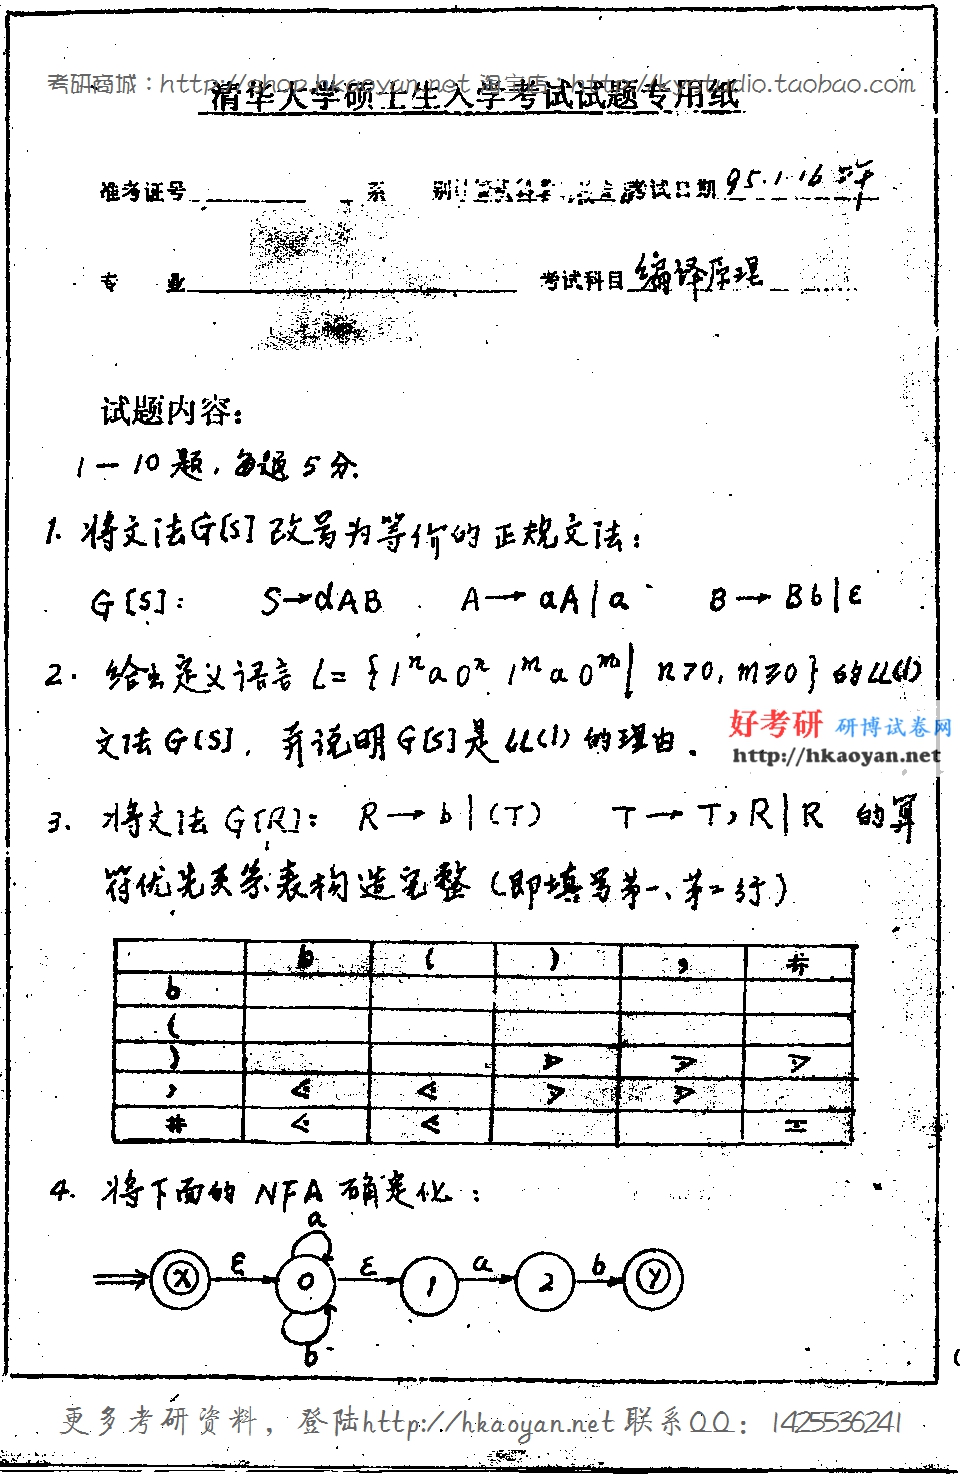 考研商城：http://shop.hkaoyan.net 淘宝店：http://kystudio.taobao.com
清华大学硕士生入学考试试题专用纸
准考证号 系 别 考试日期 95.1.16
专 业 考试科目 编译原理
试题内容：
1－10题，每题5分.
1. 将文法G[S]改写为等价的正规文法：
G[S]: S→dAB A→aA|a B→Bb|ε
2. 给出定义语言 L={1ⁿa0ⁿ1ᵐa0ᵐ| n>0, m≥0}的LL(1)
文法G[S]，并说明G[S]是LL(1)的理由.
好考研 研博试卷网
http://hkaoyan.net
3. 将文法G[R]: R→b|(T) T→T,R|R 的算
符优先关系表构造完整（即填写第一、第二行）
b ( ) , #
b
(
) ⋗ ⋗ ⋗
, ⋖ ⋖ ⋗ ⋗
# ⋖ ⋖ =
4. 将下面的 NFA 确定化：
a
X ε 0 ε 1 a 2 b Y
b
更多考研资料，登陆http://hkaoyan.net 联系QQ：1425536241